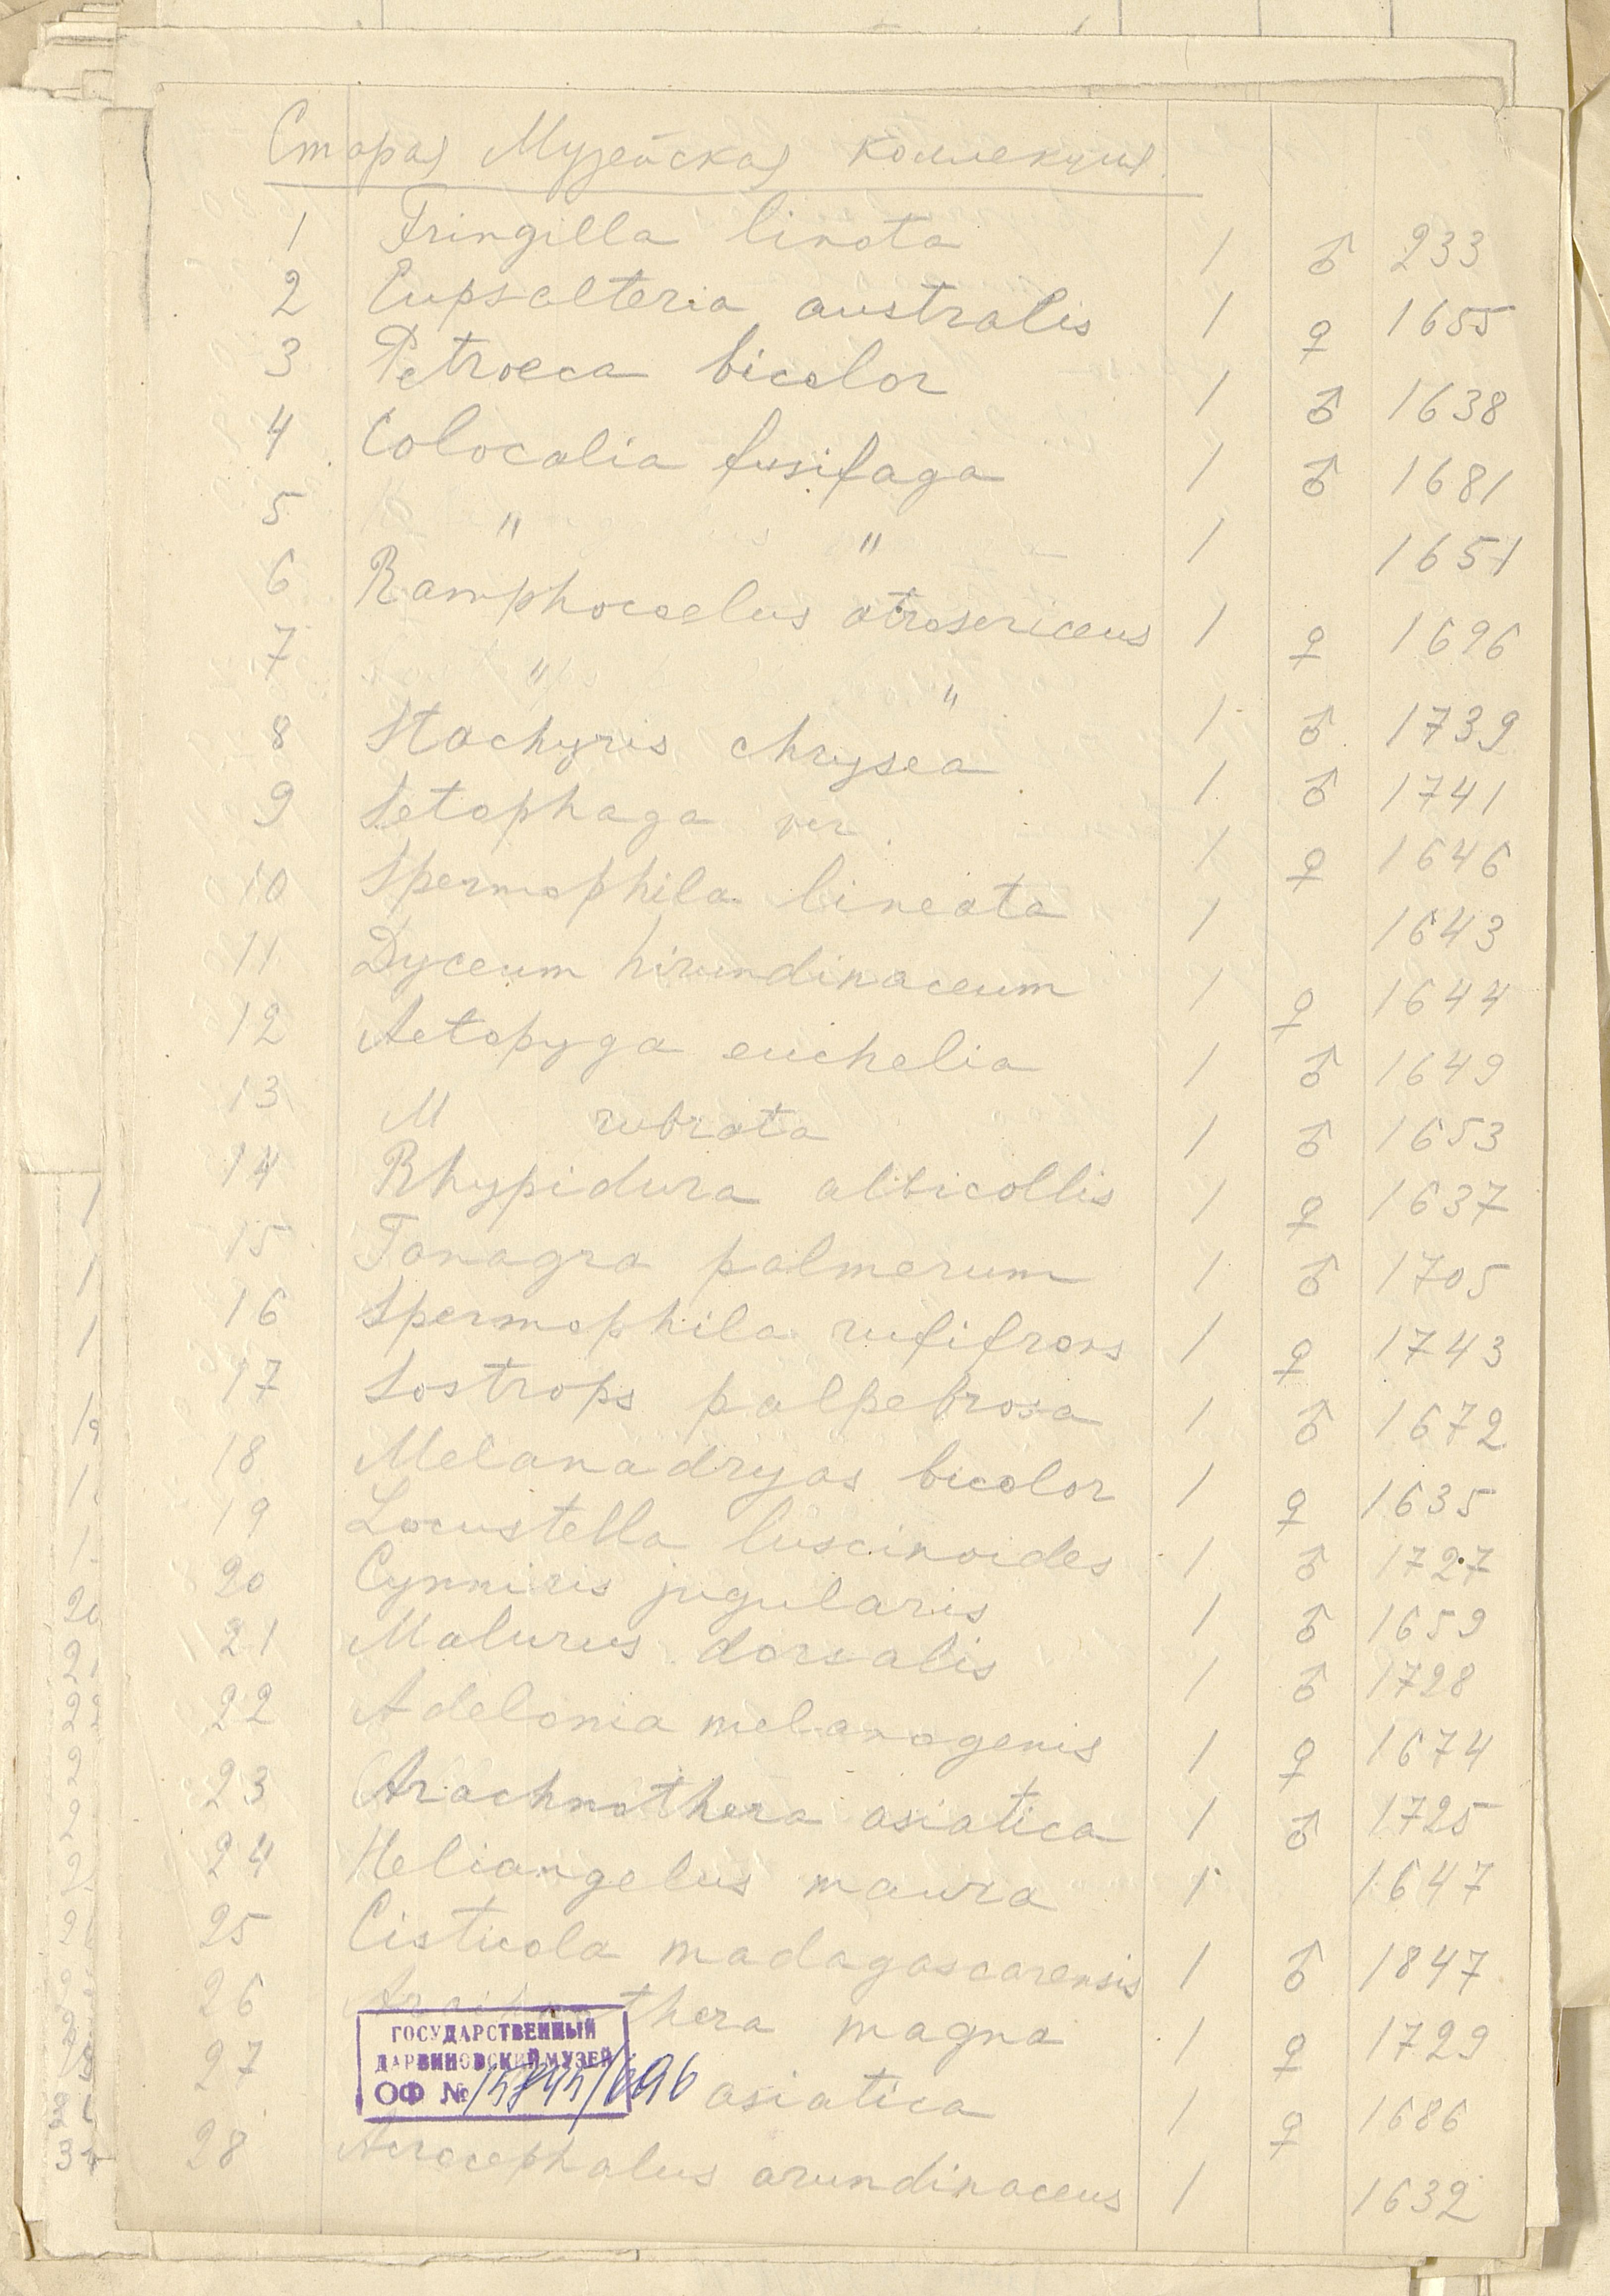 Старая Музейская коллекция
1 Fringilla linota 1 ♂ 233
2 Eupsalteria australis 1 ♀ 1655
3 Petroeca bicolor 1 ♂ 1638
4 Colocalia fusifaga 1 ♂ 1681
5 " " 1 1651
6 Ramphocoelus atrosericeus 1 ♀ 1696
7 " " 1 ♂ 1739
8 Stachyris chrysea 1 ♂ 1741
9 Setophaga ver 1 ♀ 1646
10 Spermophila lineata 1 1643
11 Dyceum hirundinaceum 1 ♀ 1644
12 Aetopyga euchelia 1 ♂ 1649
13 M rubrata 1 ♂ 1653
14 Rhypidura albicollis 1 ♀ 1637
15 Tanagra palmerum 1 ♂ 1705
16 Spermophila rufifrons 1 ♀ 1743
17 Sostrops palpebrosa 1 ♂ 1672
18 Melanadryas bicolor 1 ♀ 1635
19 Locustella luscinoides 1 ♂ 1727
20 Cynniris jugularis 1 ♂ 1659
21 Malurus dorsalis 1 ♂ 1728
22 Adelonia melanogenis 1 ♀ 1674
23 Arachnothera asiatica 1 ♂ 1725
24 Heliangelus mavra 1 1647
25 Cisticola madagascarensis 1 ♂ 1847
26 Arachnothera magna 1 ♀ 1729
27 asiatica 1 ♀ 1686
28 Acrocephalus arundinaceus 1 1632
ГОСУДАРСТВЕННЫЙ
ДАРВИНОВСКИЙ МУЗЕЙ
ОФ № 15845/696